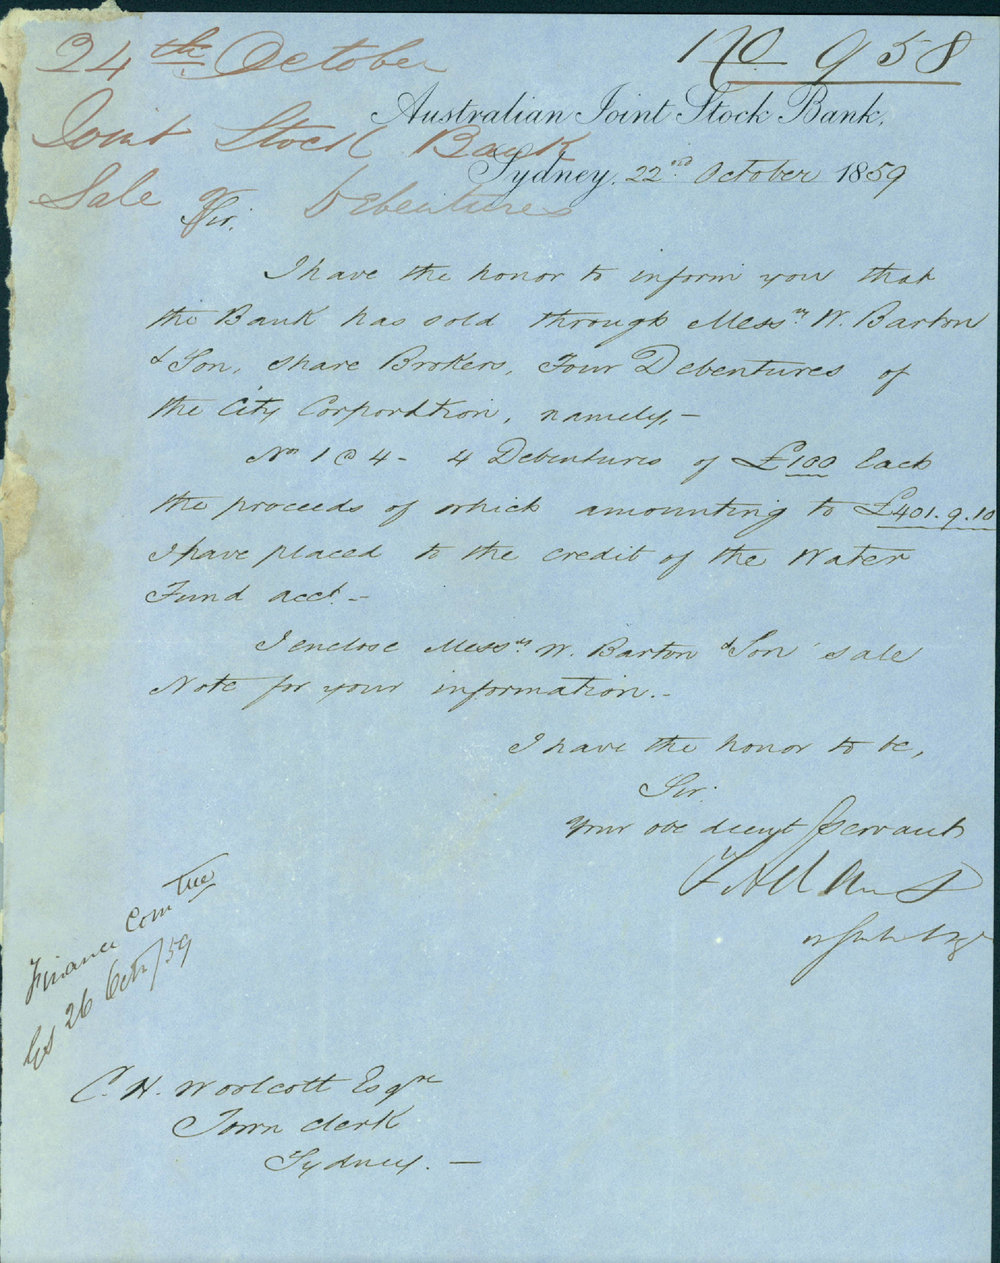 24th October
No 958
Joint Stock Bank
Sale of Debentures
Australian Joint Stock Bank,
Sydney, 22nd October 1859
Sir.
I have the honor to inform you that
the Bank has sold through Messrs W. Barton
& Son, Share Brokers, Four Debentures of
the City Corporation, namely, -
Nos 1 @ 4 - 4 Debentures of £100 Each
the proceeds of which amounting to £401.9.10
I have placed to the credit of the Water
Fund acct. -
I enclose Messrs W. Barton & Son sale
Note for your information. -
I have the honor to be,
Sir.
Your obedient Servant
Finance Comtee
26 Octr/59
C. H. Woolcott Esqre
Town Clerk
Sydney. -